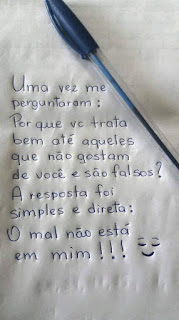 Uma vez me
perguntaram:
Por que vc trata
bem até aqueles
que não gostam
de você e são falsos?
A resposta foi
simples e direta:
O mal não está
em mim!!!